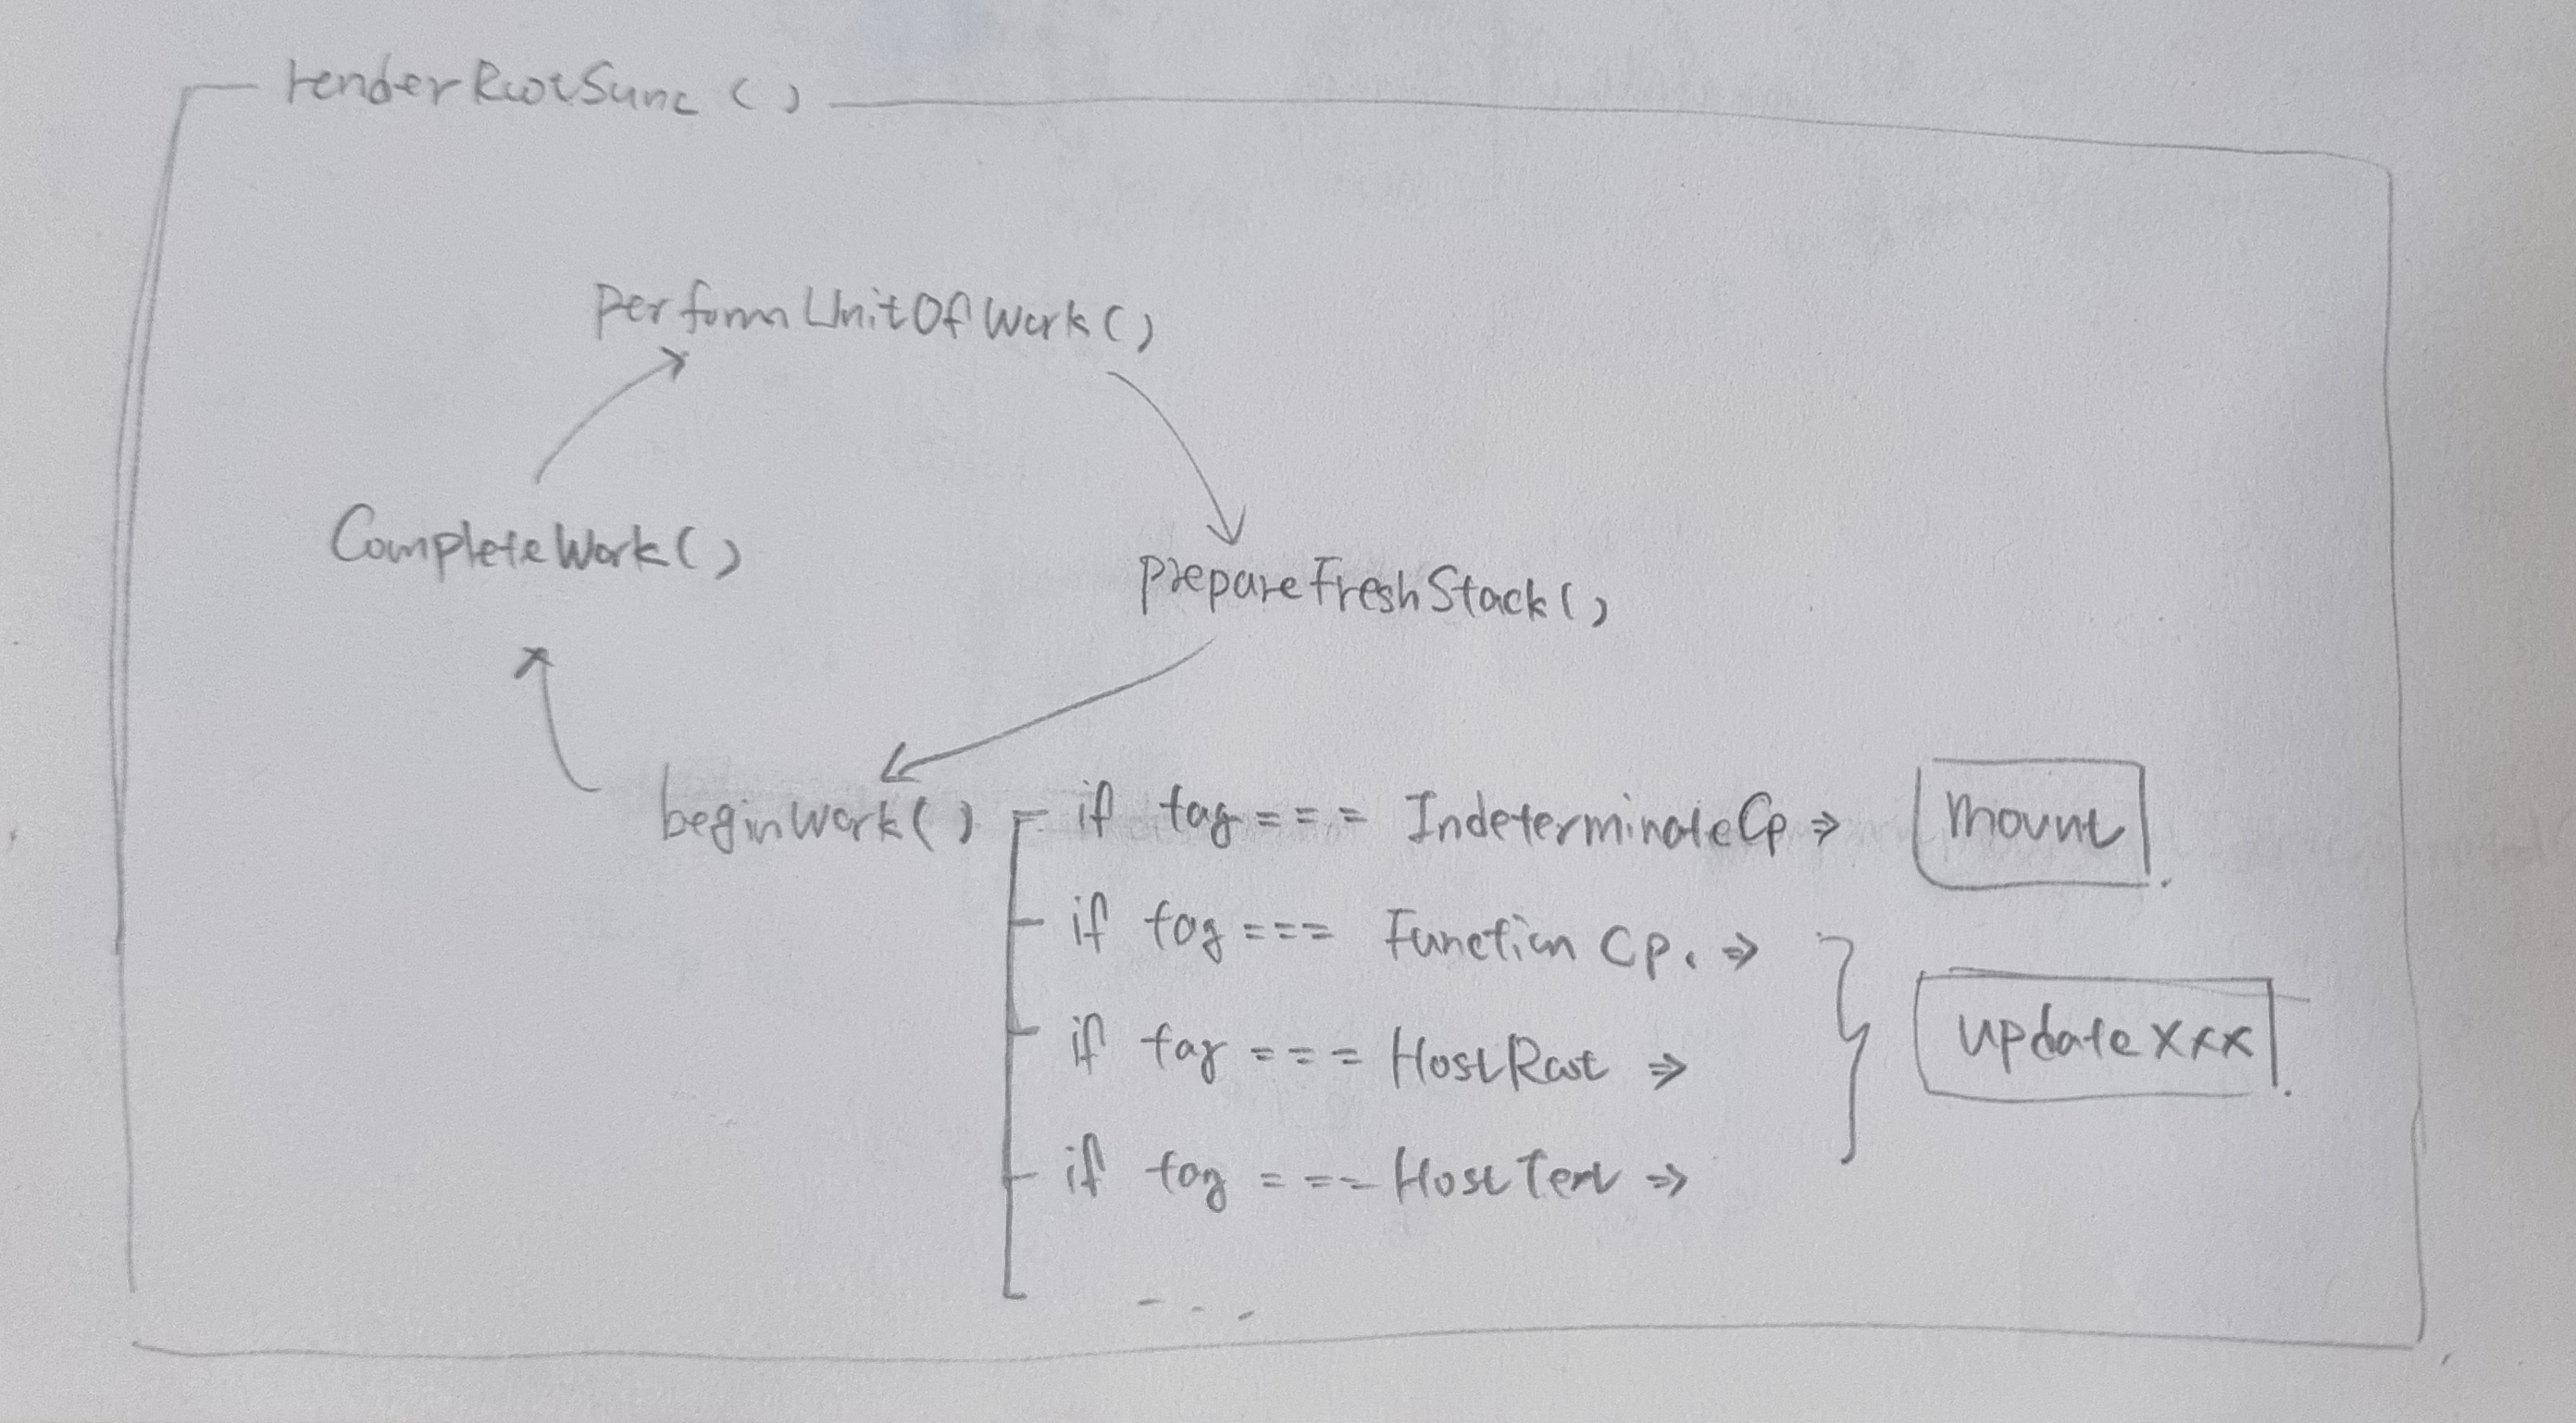 renderRootSync ( )
performUnitOfWork ( )
CompleteWork ( )
prepareFreshStack ( )
beginWork ( )
if tag === IndeterminateCp ⇒ mount
if tag === Function Cp. ⇒
if tag === HostRoot ⇒ updatexxx
if tag === HostText ⇒
...